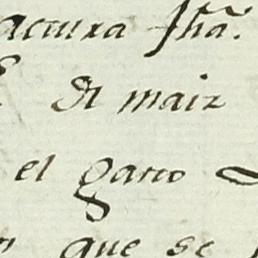 actura fha.
de maiz
el gasto
que se